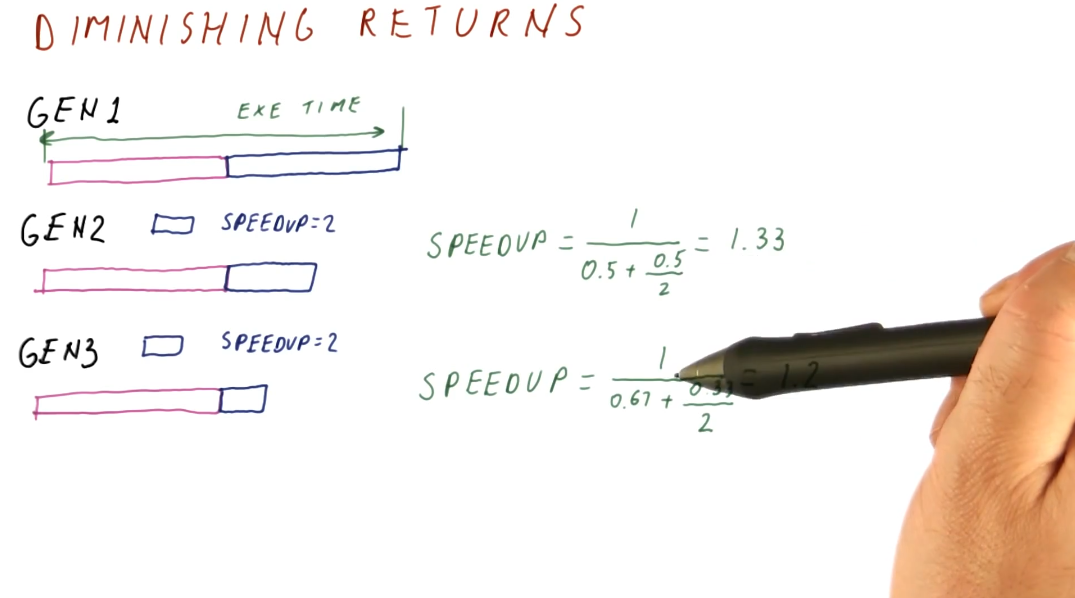 DIMINISHING RETURNS
GEN1
EXE TIME
GEN2 SPEEDUP=2
SPEEDUP = 1 / (0.5 + 0.5/2) = 1.33
GEN3 SPEEDUP=2
SPEEDUP = 1 / (0.67 + 0.33/2) = 1.2